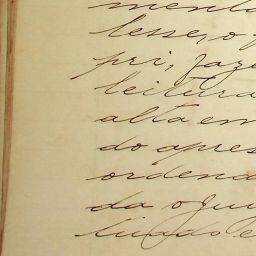 menta
lesse, o
pri, faze
leitura
alta em
do apres
ordena
da o Jui